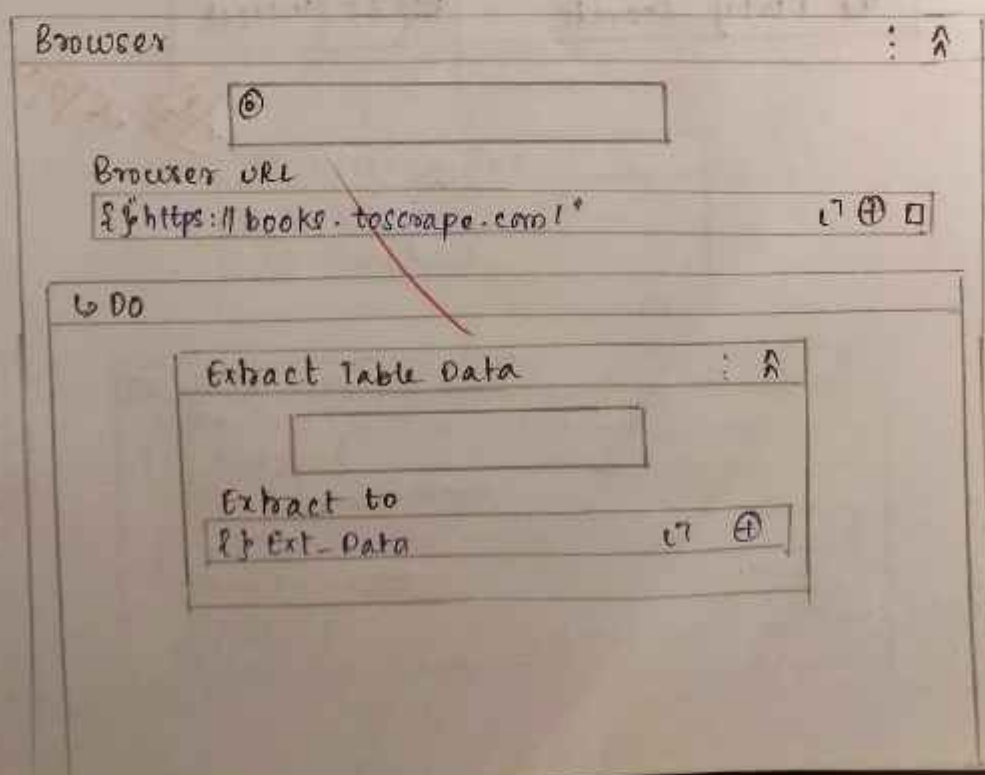 Browser
Browser URL
{}"https://books.toscrape.com/"
Do
Extract Table Data
Extract to
{} Ext_Data